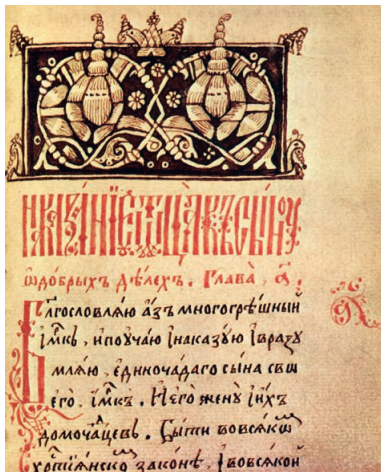 Наказаніе ѿ ѻтца къ сыноу
ѡ добрыхъ дѣлехъ. Глава, а҃.
Блгословляю азъ многогрѣшный
імкъ, ипоучаю інаказую івразу
мляю, единочадаго сына сво
его. імкъ. Иего жену іихъ
домочадцевъ. быти вовсякомъ
христіянскомъ законе, івовсякой